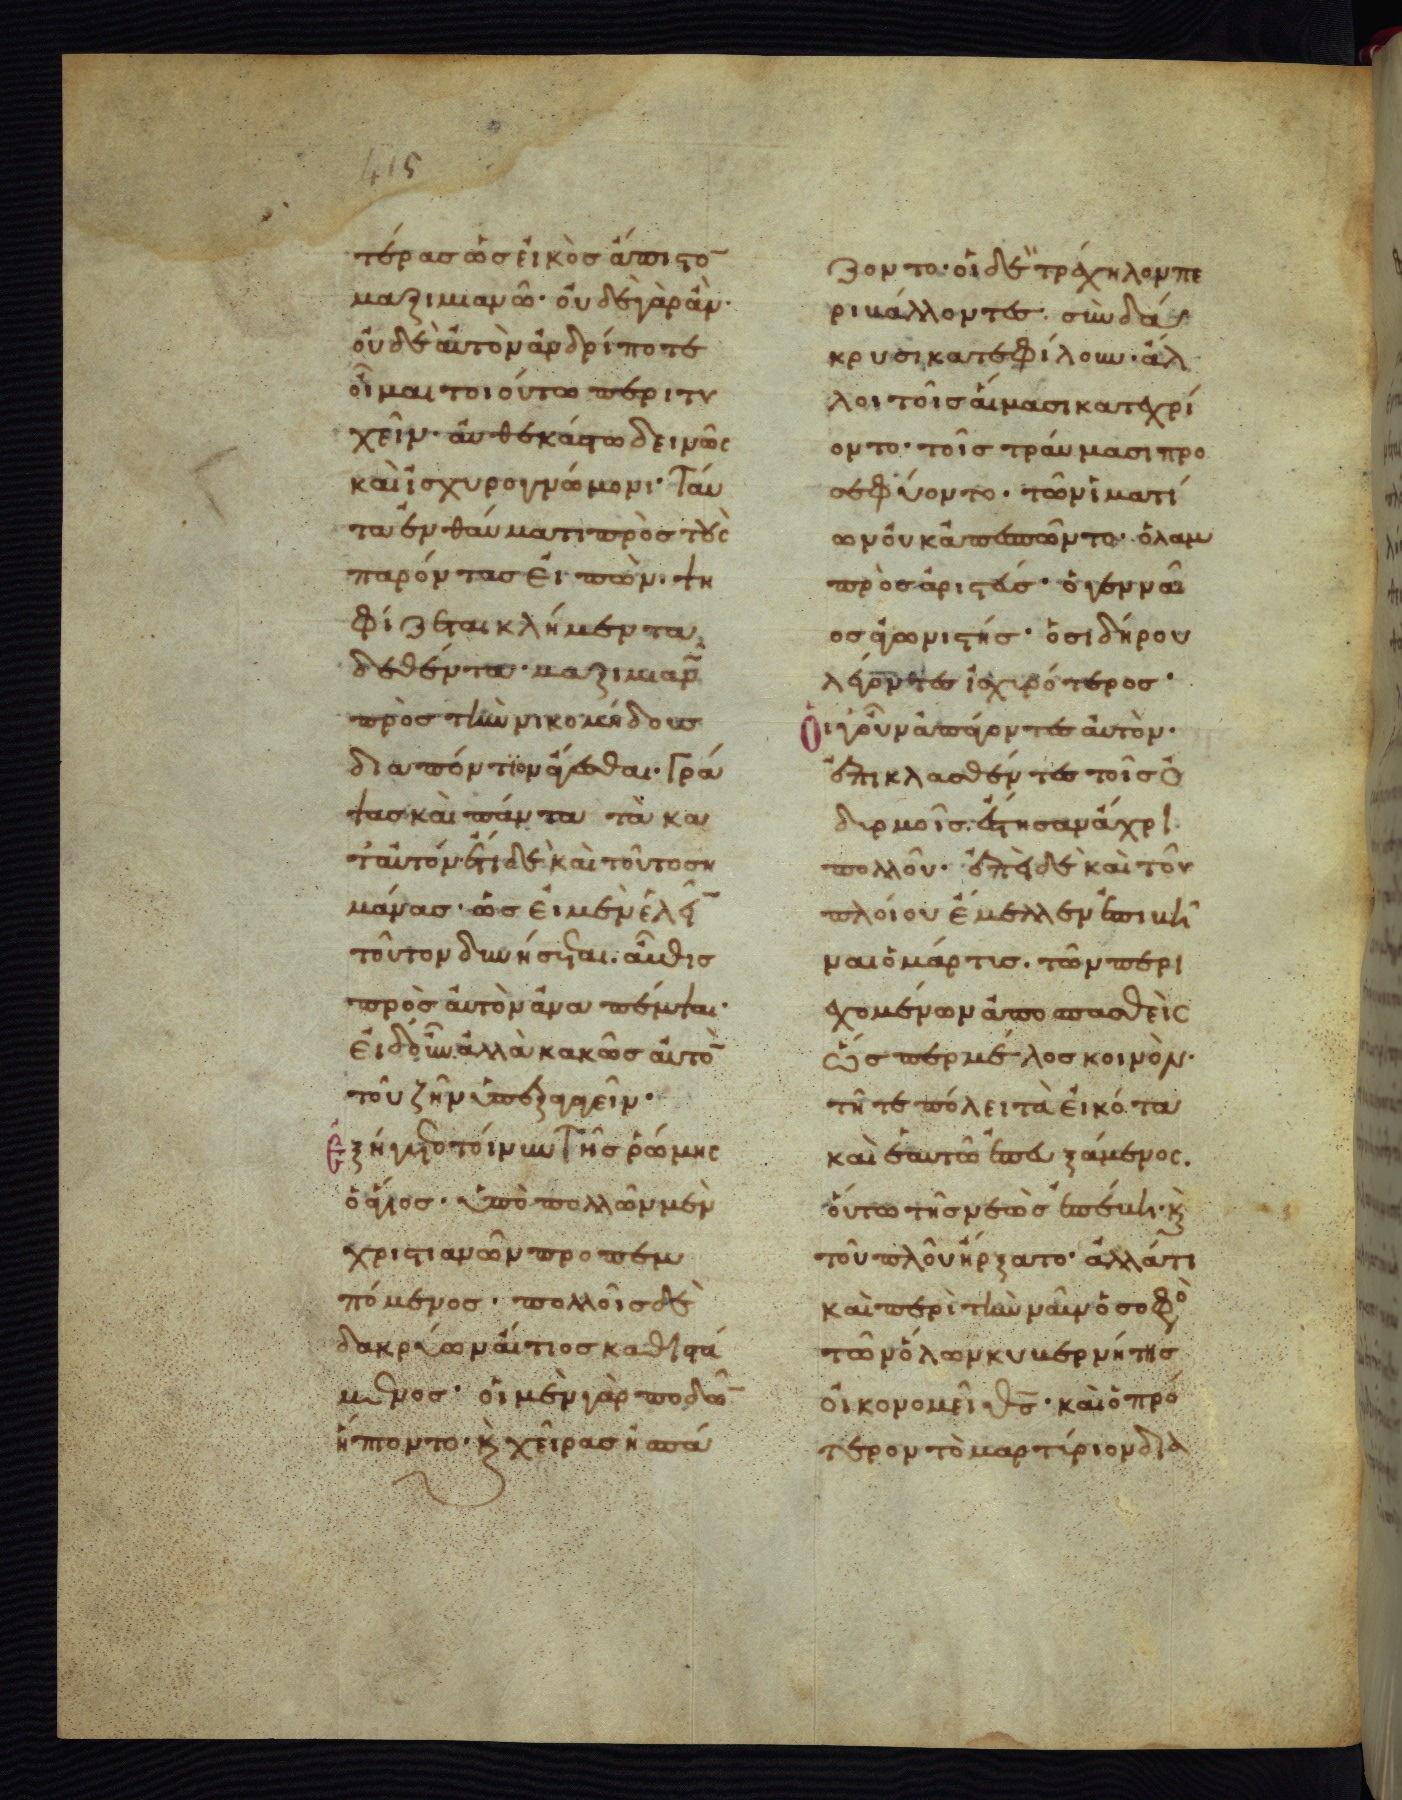 415
τέρας ὡς εἰκὸς ἄπιστο̄
μαξιμιανῶ· οὐδὲ γὰρ ἂν·
οὐδὲ αὐτὸν ἀνδρί ποτε
οἶμαι τοιούτω περιτυ
χεῖν· αὐθεκάστω δεινῶς
καὶ ἰσχυρογνώμονι· Ταῦ
τα ἐν θαύματι πρὸς τοὺς
παρόντας εἰπὼν· ψη
φίζεται κλήμεντα
δεθέντα· μαξιμιαν
πρὸς τὴν νικομήδους
διαπόντιον ἄγεσθαι· Γρά
ψας καὶ πάντα τὰ κα
τ αὐτόν· ἔτι δὲ καὶ τοῦτο ση
μάνας· ὡς εἰ μὲν ἑλεῖ̄
τοῦτον δυνήσεται. αὖθις
πρὸς αὐτὸν ἀναπέμψαι·
εἰ δ οὖν. ἀλλὰ κακῶς αὐτὸ̄
τοῦ ζῆν ὑπεξαγαγεῖν·
Ἐξήγετο τοίνυν τῆς ῥώμης
ὁ ἅγιος. ὑπὸ πολλῶν μὲν
χριστιανῶν προπεμ
πόμενος· πολλοῖς δὲ
δακρύων αἴτιος καθιστά
μενος· οἱ μὲν γὰρ ποδῶ̄
ἥπτοντο· κ χεῖρας ἠσπά
ζοντο· οἱ δὲ τράχηλον πε
ριβάλλοντες. σὺν δά
κρυσι κατεφίλουν· ἄλ
λοι τοῖς αἵμασι κατεχρί
οντο· τοῖς τραύμασι προ
σεφύοντο. τῶν ἱματί
ων οὐκ ἀπεσπῶντο· ὅλαμ
πρὸς ἀριστεύς· ὁ γενναῖ
ος ἀγωνιστής· ὁ σιδήρου
λέγοντες ἰσχυρότερος·
Οἱ γοῦν ἀπάγοντες αὐτὸν·
ἐπικλασθέντες τοῖς ὀ
δυρμοῖς. ἔστησαν ἄχρι
πολλοῦ· ἐπεὶ δὲ καὶ τοῦ
πλοίου ἔμελλεν ἐπιβῆ
ναι ὁ μάρτυς. τῶν περι
εχομένων ἀποσπασθεὶς
ὥσπερ μέλος κοινὸν·
τῆ τε πόλει τὰ εἰκότα
καὶ ἑαυτῶ ἐπευξάμενος.
οὕτω τῆς νεὼς ἐπέβη· κ
τοῦ πλοῦ ἤρξατο· ἀλλά τι
καὶ περὶ τὴν ναῦν ὁ σοφὸ
τῶν ὅλων κυβερνήτης
οἰκονομεῖ θς̄· καὶ ὁ πρό
τερον τὸ μαρτύριον δια